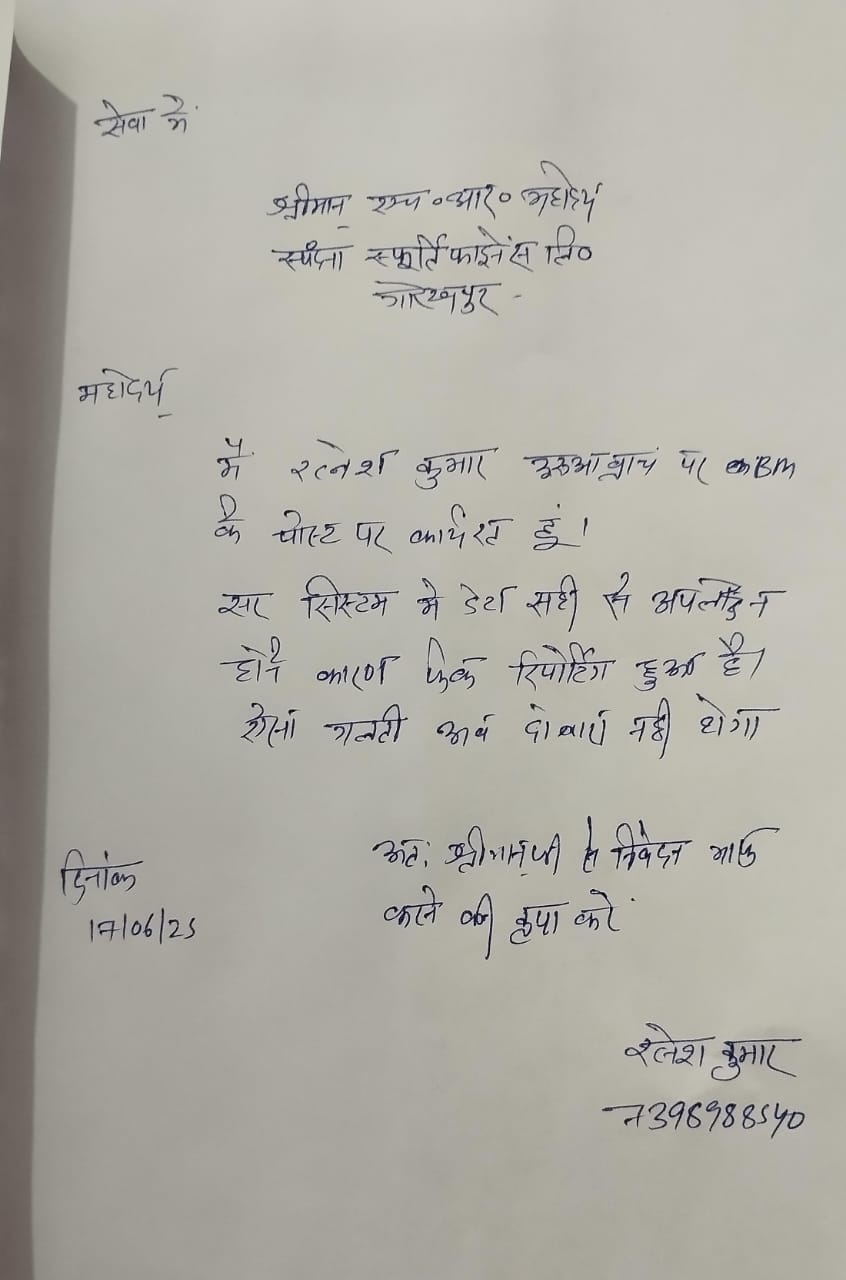 सेवा में
श्रीमान् एच०आर० महोदय
स्पंदना स्फूर्ति फाइनेंस लि०
गोरखपुर -
महोदय
मैं रत्नेश कुमार उरुआ ब्रांच पर BM
के पोस्ट पर कार्यरत हूं।
सर सिस्टम मे डेटा सही से अपलोड न
होने कारण फेक रिपोर्टिंग हुआ है।
ऐसा गलती अब दोबारा नही होगा
अतः श्रीमान् जी से निवेदन माफ
करने की कृपा करें
दिनांक
17/06/25
रत्नेश कुमार
7398988540